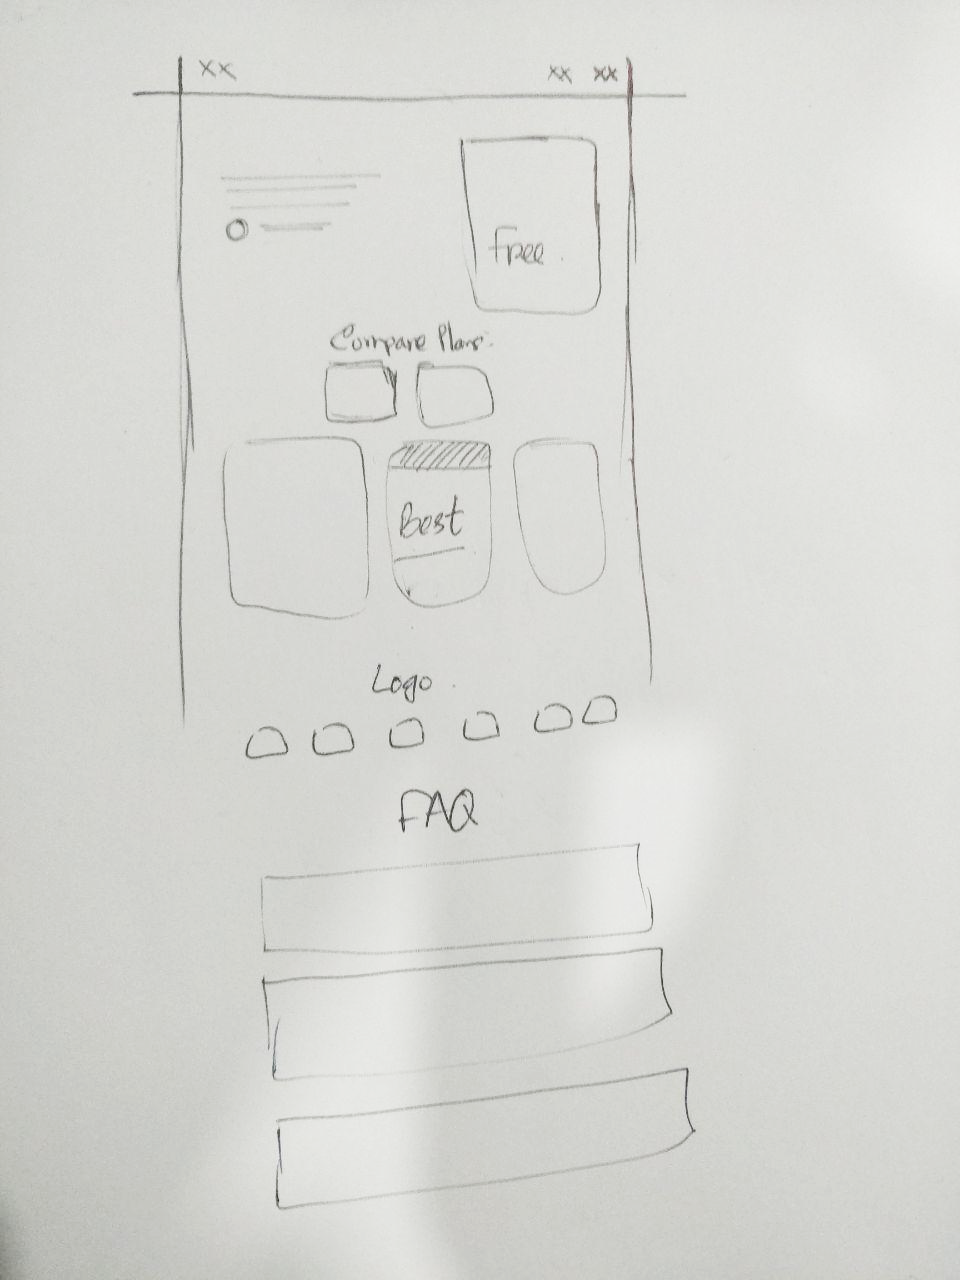 xx xx xx
Free
Compare Plans
Best
Logo
FAQ